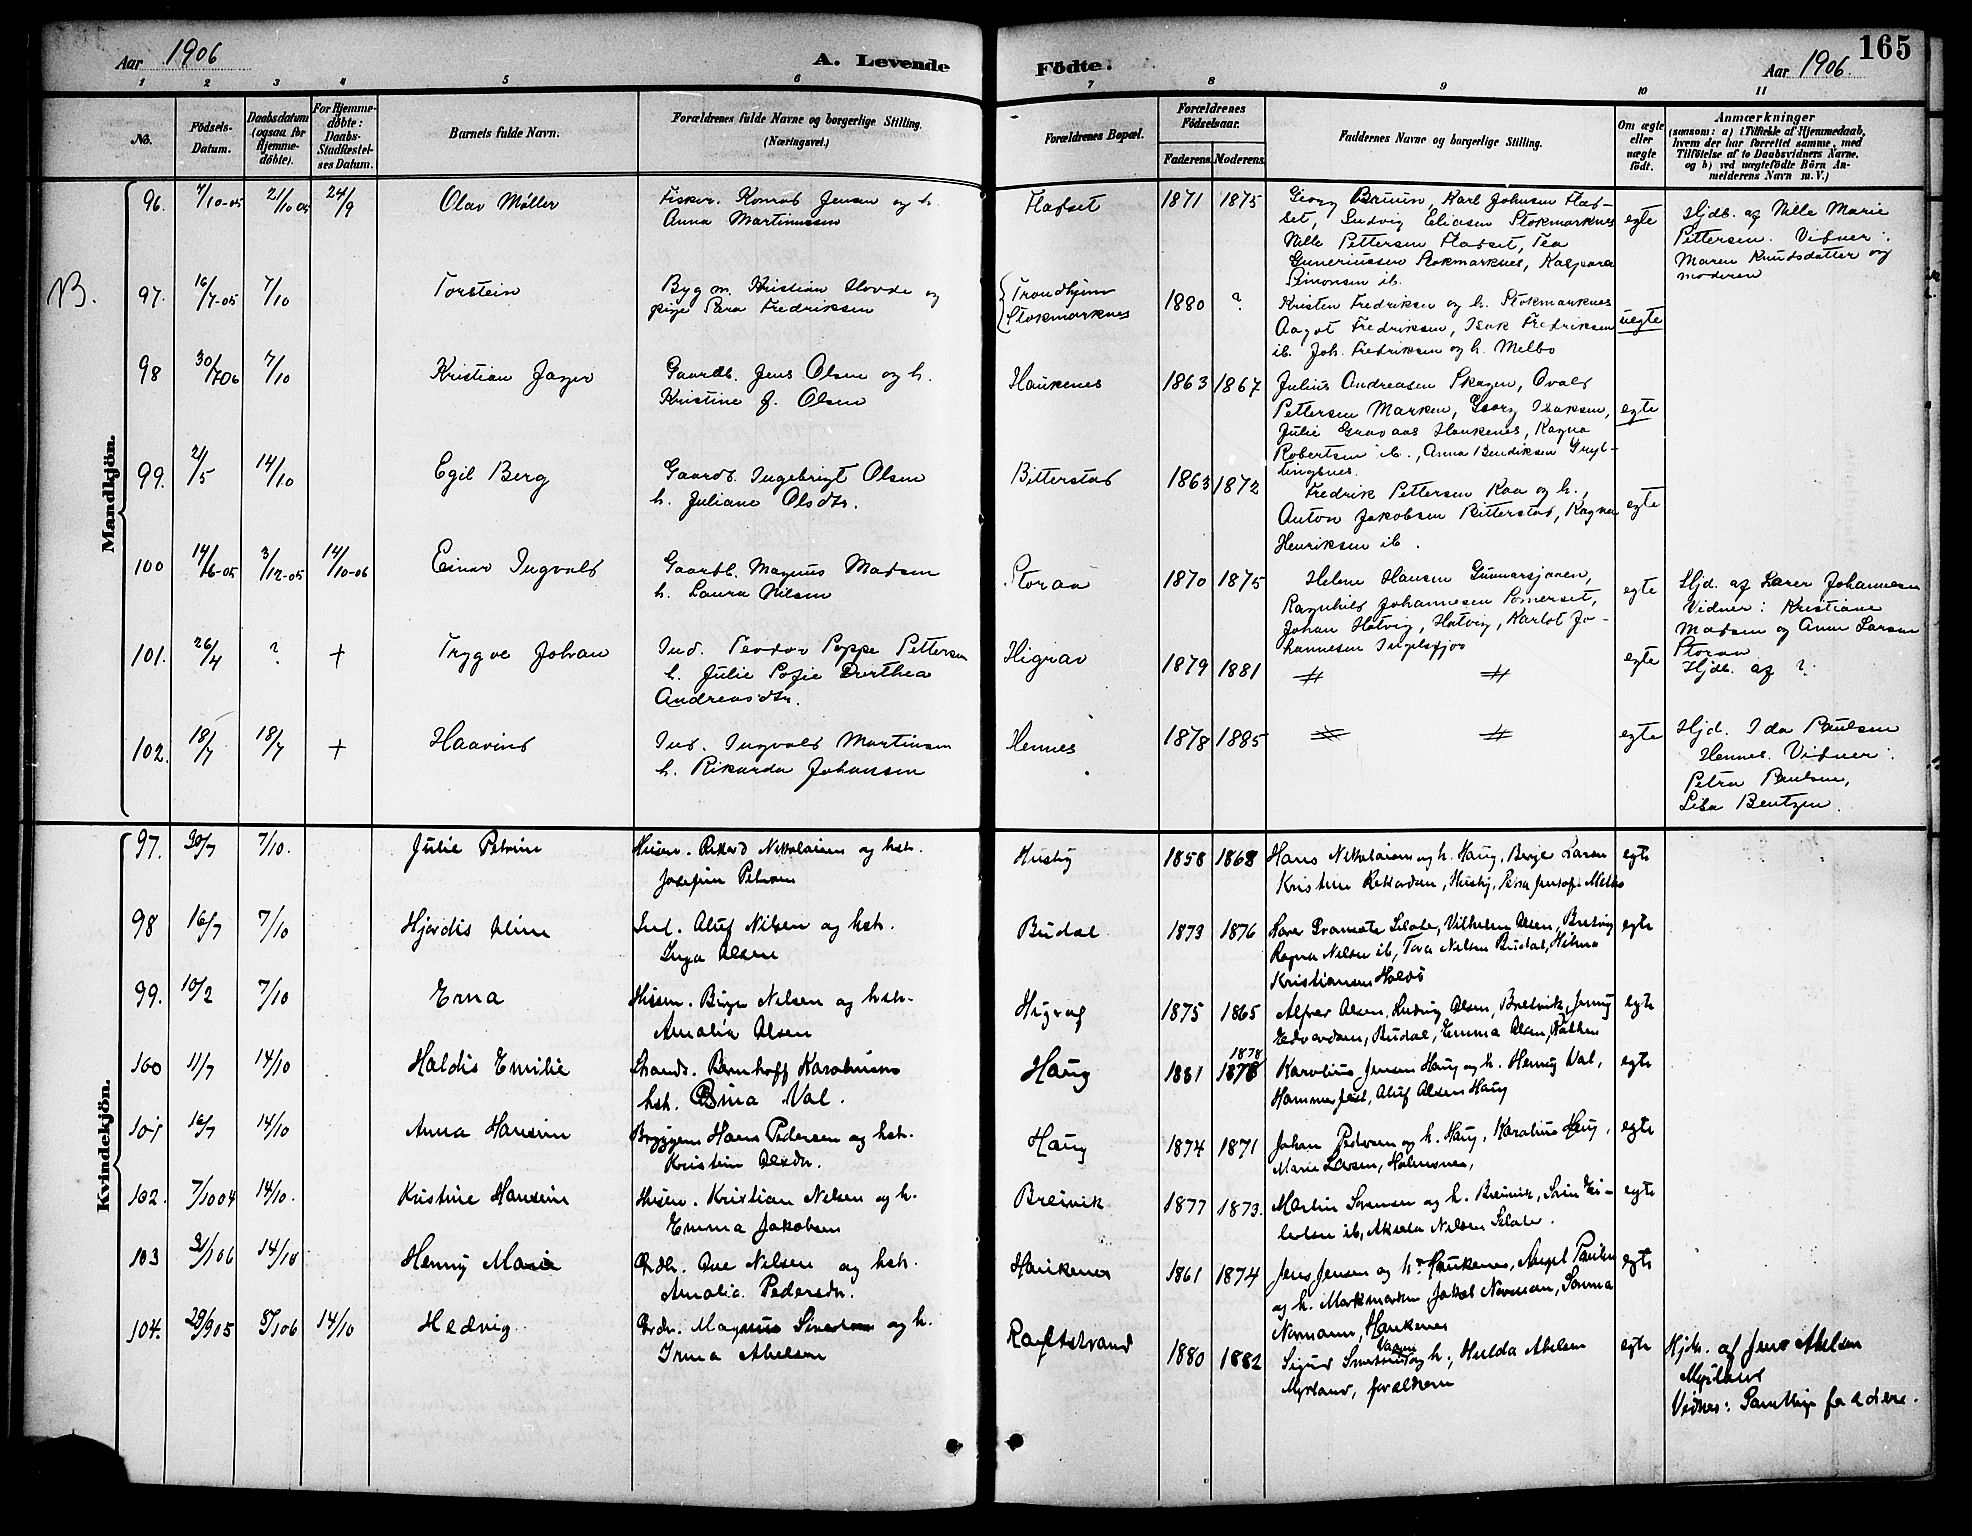 Aar 1906
A. Levende Födte.
Aar 1906.
165
1 2 3 4 5 6 7 8 9 10 11
No.
Födsels-Datum.
Daabsdatum (ogsaa for Hjemme-döbte).
For Hjemme-döbte: Daabs-Stadfæstel-ses Datum.
Barnets fulde Navn.
Forældrenes fulde Navne og borgerlige Stilling. (Næringsvei.)
Forældrenes Bopæl.
Forældrenes Födselsaar.
Faderens. Moderens.
Faddernes Navne og borgerlige Stilling.
Om ægte eller uægte födt.
Anmærkninger
(saasom: a) i Tilfælde af Hjemmedaab,
hvem der har forrettet samme, med
Tilföielse af to Daabsvidners Navne,
og b) ved uægtefödte Börn An-
melderens Navn m. V.)
Mandkjön.
96. 7/10-05 21/10 05 24/9 Olav Møller
Fisker. Konrad Jensen og h.
Anna Martinussen
Fladset 1871 1875
Georg Bruun, Karl Johnsen Flad-
set, Ludvig Eliasen Stokmarknes
Nille Pettersen Fladset, Tea
Guneriussen Stokmarknes, Kaspara
Simonsen ib.
egte
Hjdb. af Nille Marie
Pettersen. Vidner:
Maren Knudsdatter og
moderen
B.
97. 16/7-05 7/10 Torstein
Bygm. Kristian Hovde og
pige Sara Fredriksen
Trondhjem
Stokmarknes
1880 ?
Kristen Fredriksen og h. Stokmarknes
Aagot Fredriksen, Isak Fredriksen
ib. Joh. Fredriksen og h. Melbo
uegte
98 30/7 06 7/10 Kristian Jager
Gaardb. Jens Olsen og h.
Kristine J. Olsen
Haukenes 1863 1867
Julius Andreasen Skagen, Ovald
Pettersen Marken, Georg Isaksen,
Julie Gravaas Haukenes, Ragna
Robertsen ib., Anna Bendiksen Gryt-
tingsnes.
egte
99. 21/5 14/10 Egil Berg
Gaardb. Ingebrigt Olsen
h. Juliane Olsdtr.
Bitterstad 1863 1872
Fredrik Pettersen Kaa og h.,
Anton Jakobsen Bitterstad, Ragna
Henriksen ib.
egte
100 14/6-05 3/12-05 14/10-06 Einar Ingvald
Gaardb. Magnus Madsen
h. Laura Nilsen
Storaa 1870 1875
Helene Hansen Gunnarsjaaen,
Ragnhild Johannesen Pomerset,
Johan Hatvig, Hatvig, Karlot Jo-
hannesen Ingelsfjor
egte
Hjd. af Larer Johannesen
Vidner: Kristiane
Madsen og Anna Larsen
Storaa
101. 26/4 ? + Trygve Johan
Ind. Teodor Poppe Pettersen
h. Julie Sofie Dorthea
Andreasdtr.
Higrav 1879 1881
egte
Hjdb. af ?
102. 18/7 18/7 + Haavind
Ind. Ingvald Martinsen
h. Rikarda Johansen
Hennes 1878 1885
egte
Hjd. Ida Paulsen
Hennes. Vidner:
Petra Paulsen,
Lisa Bentzen.
Kvindekjön.
97. 30/7 7/10. Julie Petrine
Husm. Rikard Nikolaisen og hstr.
Josefine Petersen
Husby 1858 1868
Hans Nikolaisen og h. Haug, Berger Larsen
Kristine Rikardsen, Husby,
egte
98 16/7 7/10 Hjørdis Aline
Ind. Oluf Nilsen og hstr.
Inga Olsen
Budal 1873 1876
Vilhelm Olsen, Breivig
Ragna Nilsen ib, Tora Nilsen Budal, Hilma
Kristiansen
egte
99. 10/2 7/10 Erna
Husm. Birger Nilsen og hstr.
Amalia Olsen
Higrav 1875 1865
Alfred Olsen, Ludvig Olsen, Breivik, Jenny
Edvardsen, Budal, Emma Olsen,
egte
100 11/7 14/10 Haldis Emilie
Strands. Bernhoff Karoliussen
hstr. Dina Val.
Haug 1881 1878 1878
Karolius Jensen Haug og h. Henny Val,
Hammerfest, Oluf Olsen Haug
egte
101 16/7 14/10 Anna Hansine
Bryggem Hans Pedersen og hstr.
Kristine Olsdtr.
Haug 1874 1871
Johan Pedersen og h. Haug, Karolius Haug,
Marie Larsen, Holmsnes,
egte
102. 7/10 04 14/10. Kristine Hansine
Husm. Kristian Nilsen og h.
Emma Jakobsen
Breivik 1877 1873.
Martin Sørensen og h. Breivik,
ib, Aksela Nilsen
egte
103 3/1 06 14/10 Henny Marie
Grdb. Ove Nilsen og hstr.
Amalie Pedersdtr.
Haukenes 1861 1874
Jens Jensen og h. Haukenes, Angel Paulsen
og h. Markmarken Jakob Normann, Sanna
Normann, Haukenes
egte
104. 29/9 05 5/1 06 14/10 Hedvig
Grdb. Magnus Sivertsen og h.
Irma Abelsen
Raftstrand 1880 1882
Sigurd Sivertsen og h., Hulda Abelsen
Myrland, forældrene
egte
Hjdb. af Jens Abelsen
Myrland
Vidner: Samtlige faddere.